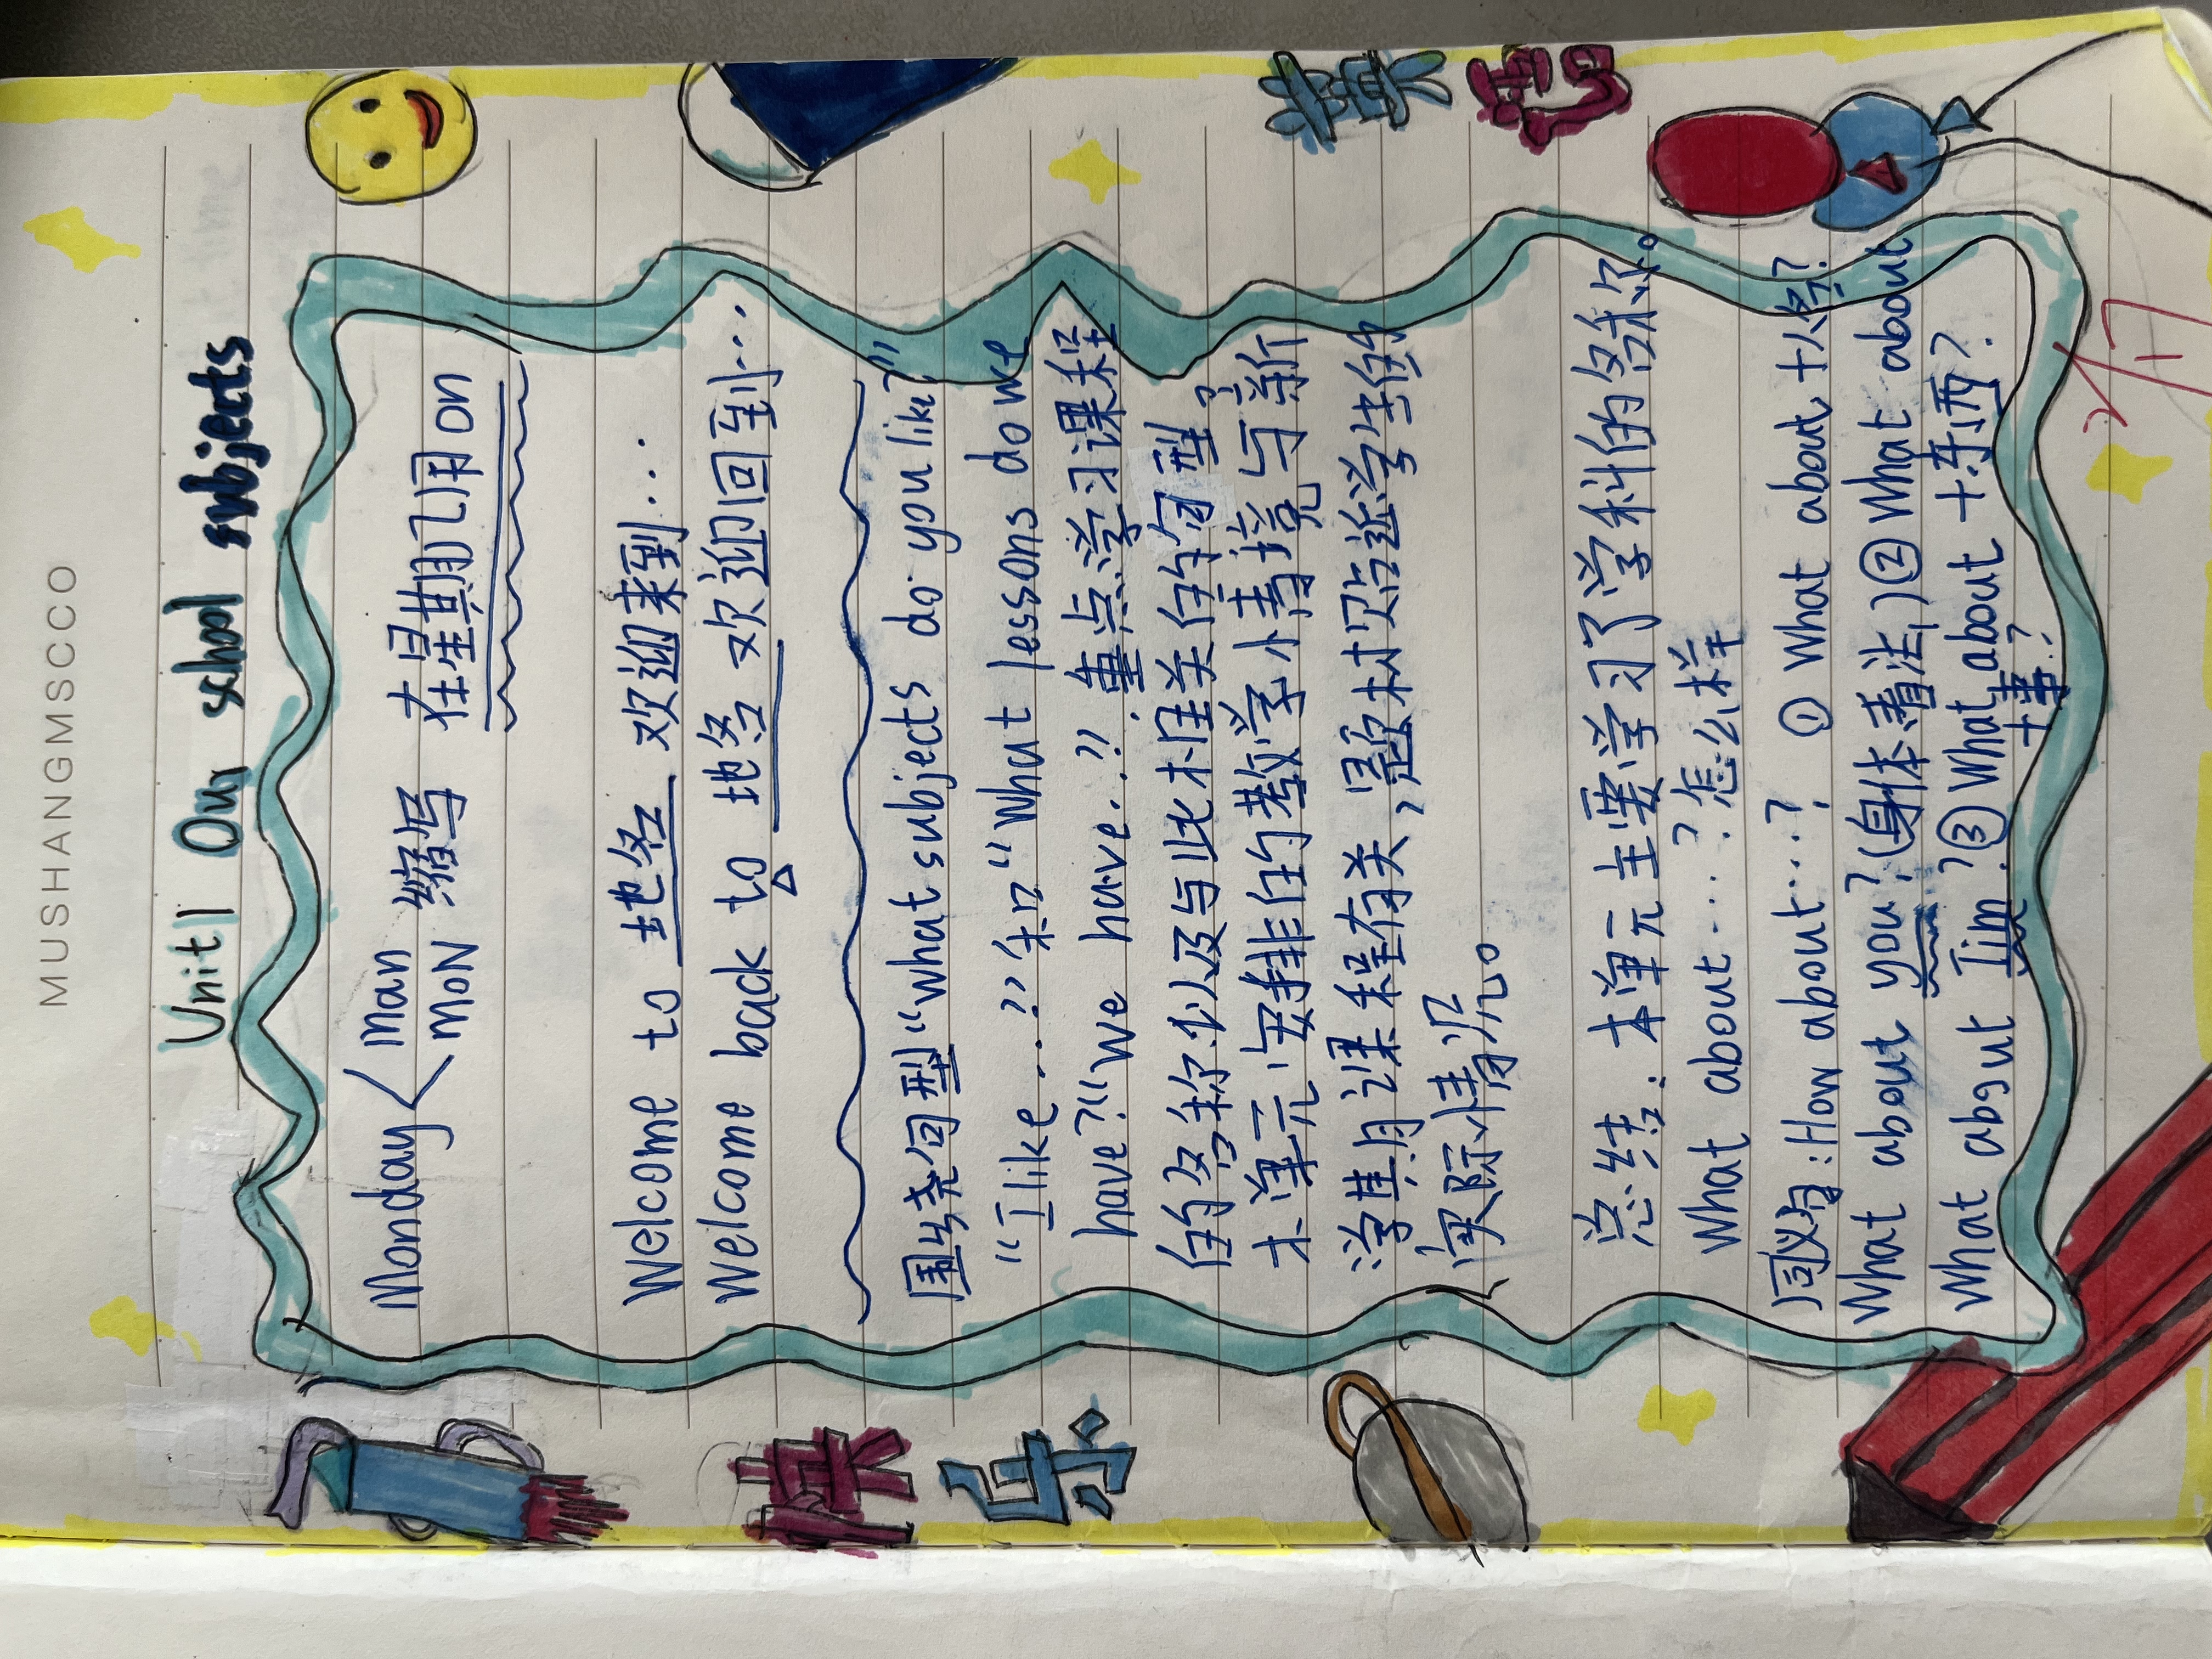 MUSHANGMSCCO
Unit1 Our school subjects
Monday Man
MON 缩写 在星期几用on
Welcome to 地名 欢迎来到...
Welcome back to 地名 欢迎回到...
围绕句型“what subjects do you like?”
“I like...”和“What lessons do we
have?”“We have...”重点学习课程
的名称以及与此相关的句型。
本单元安排的教学情境与新
学期课程有关,题材贴近学生的
实际情况。
总结：本单元主要学习了学科的名称。
What about...?怎么样
同义句:How about...? ① What about+人名?
What about you?(身体看法)② What about
What about Jim?③What about+东西?
+事?
英
语
笔
记